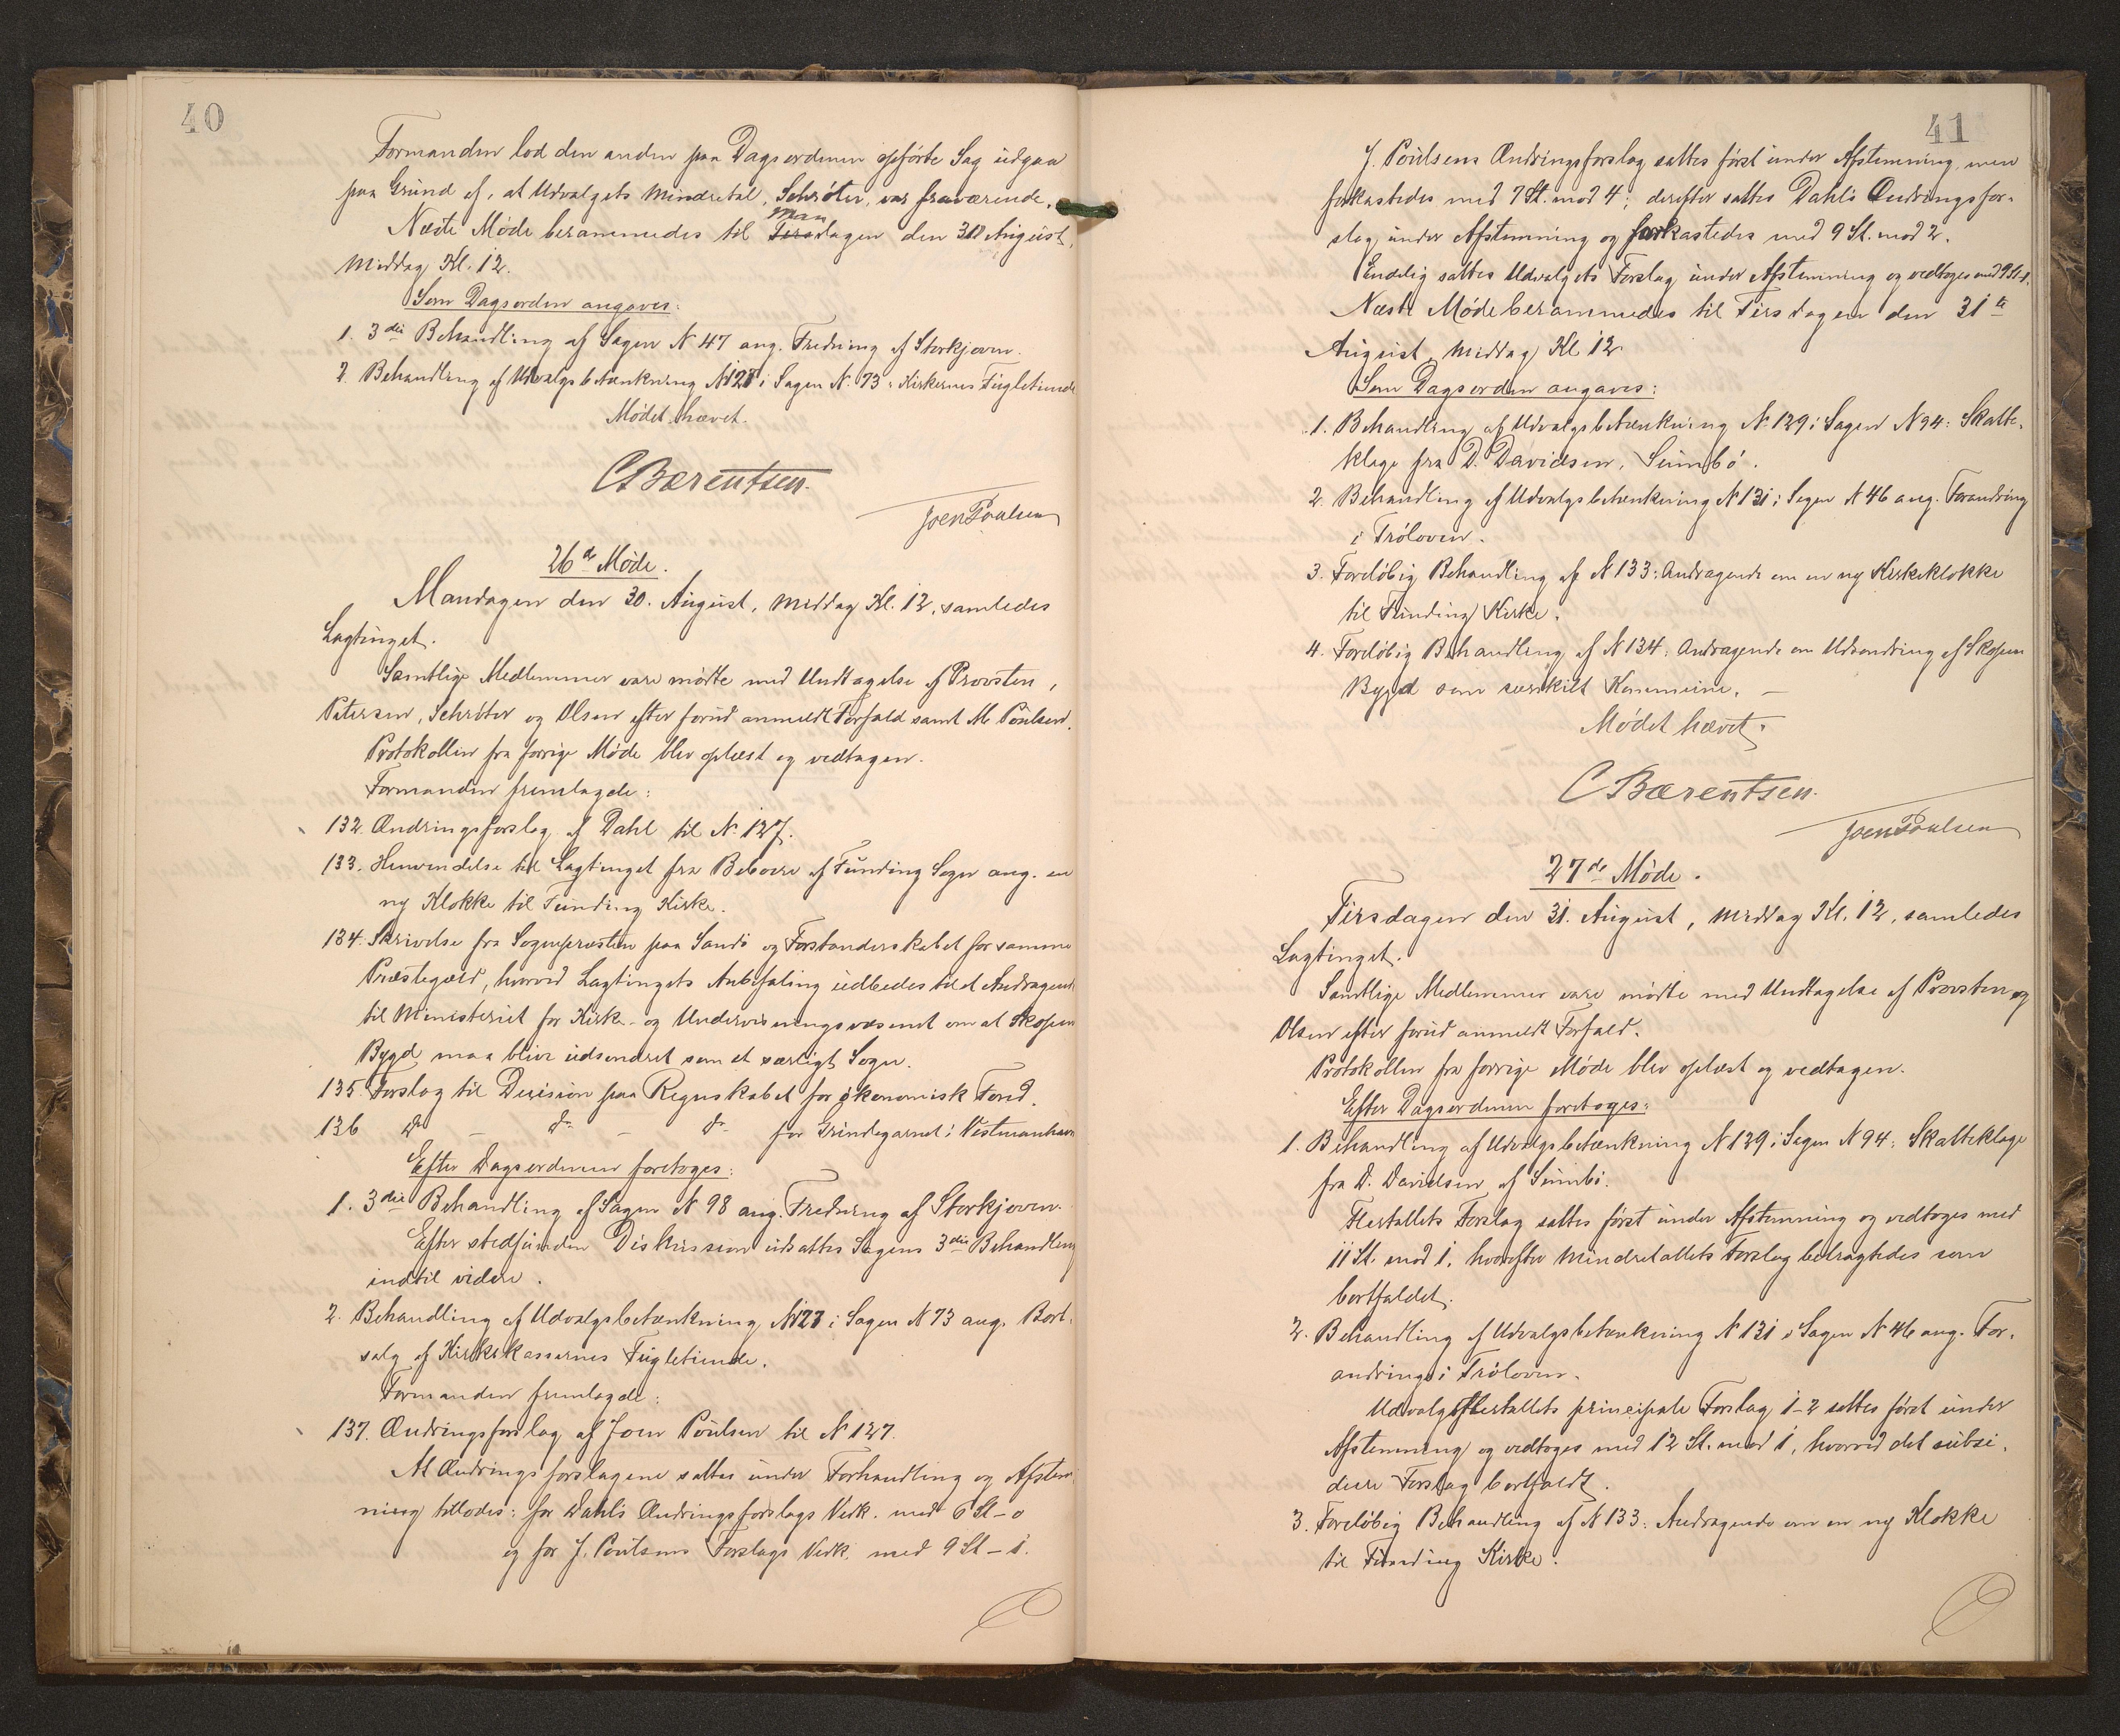 40
Formanden lod den anden paa Dagsordenen opførte Sag udgaa
paa Grund af, at Udvalgets Mindretal, Schrøter, var fraværende.
Næste Møde berammedes til Tirsdagen Man den 30 August,
Middag Kl. 12.
Som Dagsorden angaves:
1. 3die Behandling af Sagen N 47 ang. Fredning af Storkjoven.
2. Behandling af Udvalgsbetænkning N 127 i Sagen N. 73: Kirkernes Fugletiende
Mødet hævet.
C Bærentsen.
Joen Poulsen
26de Møde.
Mandagen den 30. August, Middag Kl. 12, samledes
Lagtinget.
Samtlige Medlemmer vare mødte med Undtagelse af Provsten,
Petersen, Schrøter og Olsen efter forud anmeldt Forfald samt M. Poulsen.
Protokollen fra forrige Møde blev oplæst og vedtagen.
Formanden fremlagde:
132. Ændringsforslag af Dahl til N. 127.
133. Henvendelse til Lagtinget fra Beboere af Funding Sogn ang. en
ny Klokke til Funding Kirke.
134. Skrivelse fra Sognepræsten paa Sandø og Forstanderskabet for samme
Præstegæld, hvorved Lagtingets Anbefaling udbedes til et Andragende
til Ministeriet for Kirke- og Undervisningsvæsenet om at Skopun
Bygd maa blive udsondret som et særligt Sogn.
135. Forslag til Decision paa Regnskabet for økonomisk Fond.
136 Do – Do – Do for Grindegarnet i Vestmanhavn
Efter Dagsordenen foretoges:
1. 3die Behandling af Sagen N 98 ang. Fredning af Storkjoven.
Efter stedfunden Diskussion udsattes Sagens 3die Behandling
indtil videre.
2. Behandling af Udvalgsbetænkning N 127 i Sagen N 73 ang. Bort-
salg af Kirkekassernes Fugletiende.
Formanden fremlagde:
137. Ændringsforslag af Joen Poulsen til N 127.
At Ændringsforslagene sattes under Forhandling og Afstem-
ning tillodes: for Dahls Ændringsforslags Vedk. med 6 St – 0
og for J. Poulsens Forslags Vedk. med 9 St – 1.
41
J. Poulsens Ændringsforslag sattes først under Afstemning, men
forkastedes med 7 St. mod 4; derefter sattes Dahls Ændringsfor-
slag under Afstemning og forkastedes med 9 St. mod 2.
Endelig sattes Udvalgets Forslag under Afstemning og vedtoges med 9 St-1.
Næste Møde berammedes til Tirsdagen den 31te
August, Middag Kl 12.
Som Dagsorden angaves:
1. Behandling af Udvalgsbetænkning N. 129 i Sagen N 94: Skatte-
klage fra D. Davidsen, Sumbø.
2. Behandling af Udvalgsbetænkning N 131 i Sagen N 46 ang. Forandring
i Trøloven.
3. Foreløbig Behandling af N 133: Andragende om en ny Kirkeklokke
til Funding Kirke.
4. Foreløbig Behandling af N 134: Andragende om Udsondring af Skopun
Bygd som særskilt Kommune. –
Mødet hævet.
C Bærentsen.
Joen Poulsen
27de Møde.
Tirsdagen den 31. August, Middag Kl. 12, samledes
Lagtinget.
Samtlige Medlemmer vare mødte med Undtagelse af Provsten og
Olsen efter forud anmeldt Forfald.
Protokollen fra forrige Møde blev oplæst og vedtagen.
Efter Dagsordenen foretoges:
1. Behandling af Udvalgsbetænkning N 129 i Sagen N 94: Skatteklage
fra D. Davidsen af Sumbø.
Flertallets Forslag sattes først under Afstemning og vedtoges med
11 St. mod 1, hvorefter Mindretallets Forslag betragtedes som
bortfaldet.
2. Behandling af Udvalgsbetænkning N 131 i Sagen N 46 ang. For-
andring i Trøloven.
Udvalgsflertallets principale Forslag 1-2 sattes først under
Afstemning og vedtoges med 12 St. mod 1, hvorved det subsi-
diere Forslag bortfaldt.
3. Foreløbig Behandling af N 133: Andragende om en ny Klokke
til Funding Kirke.